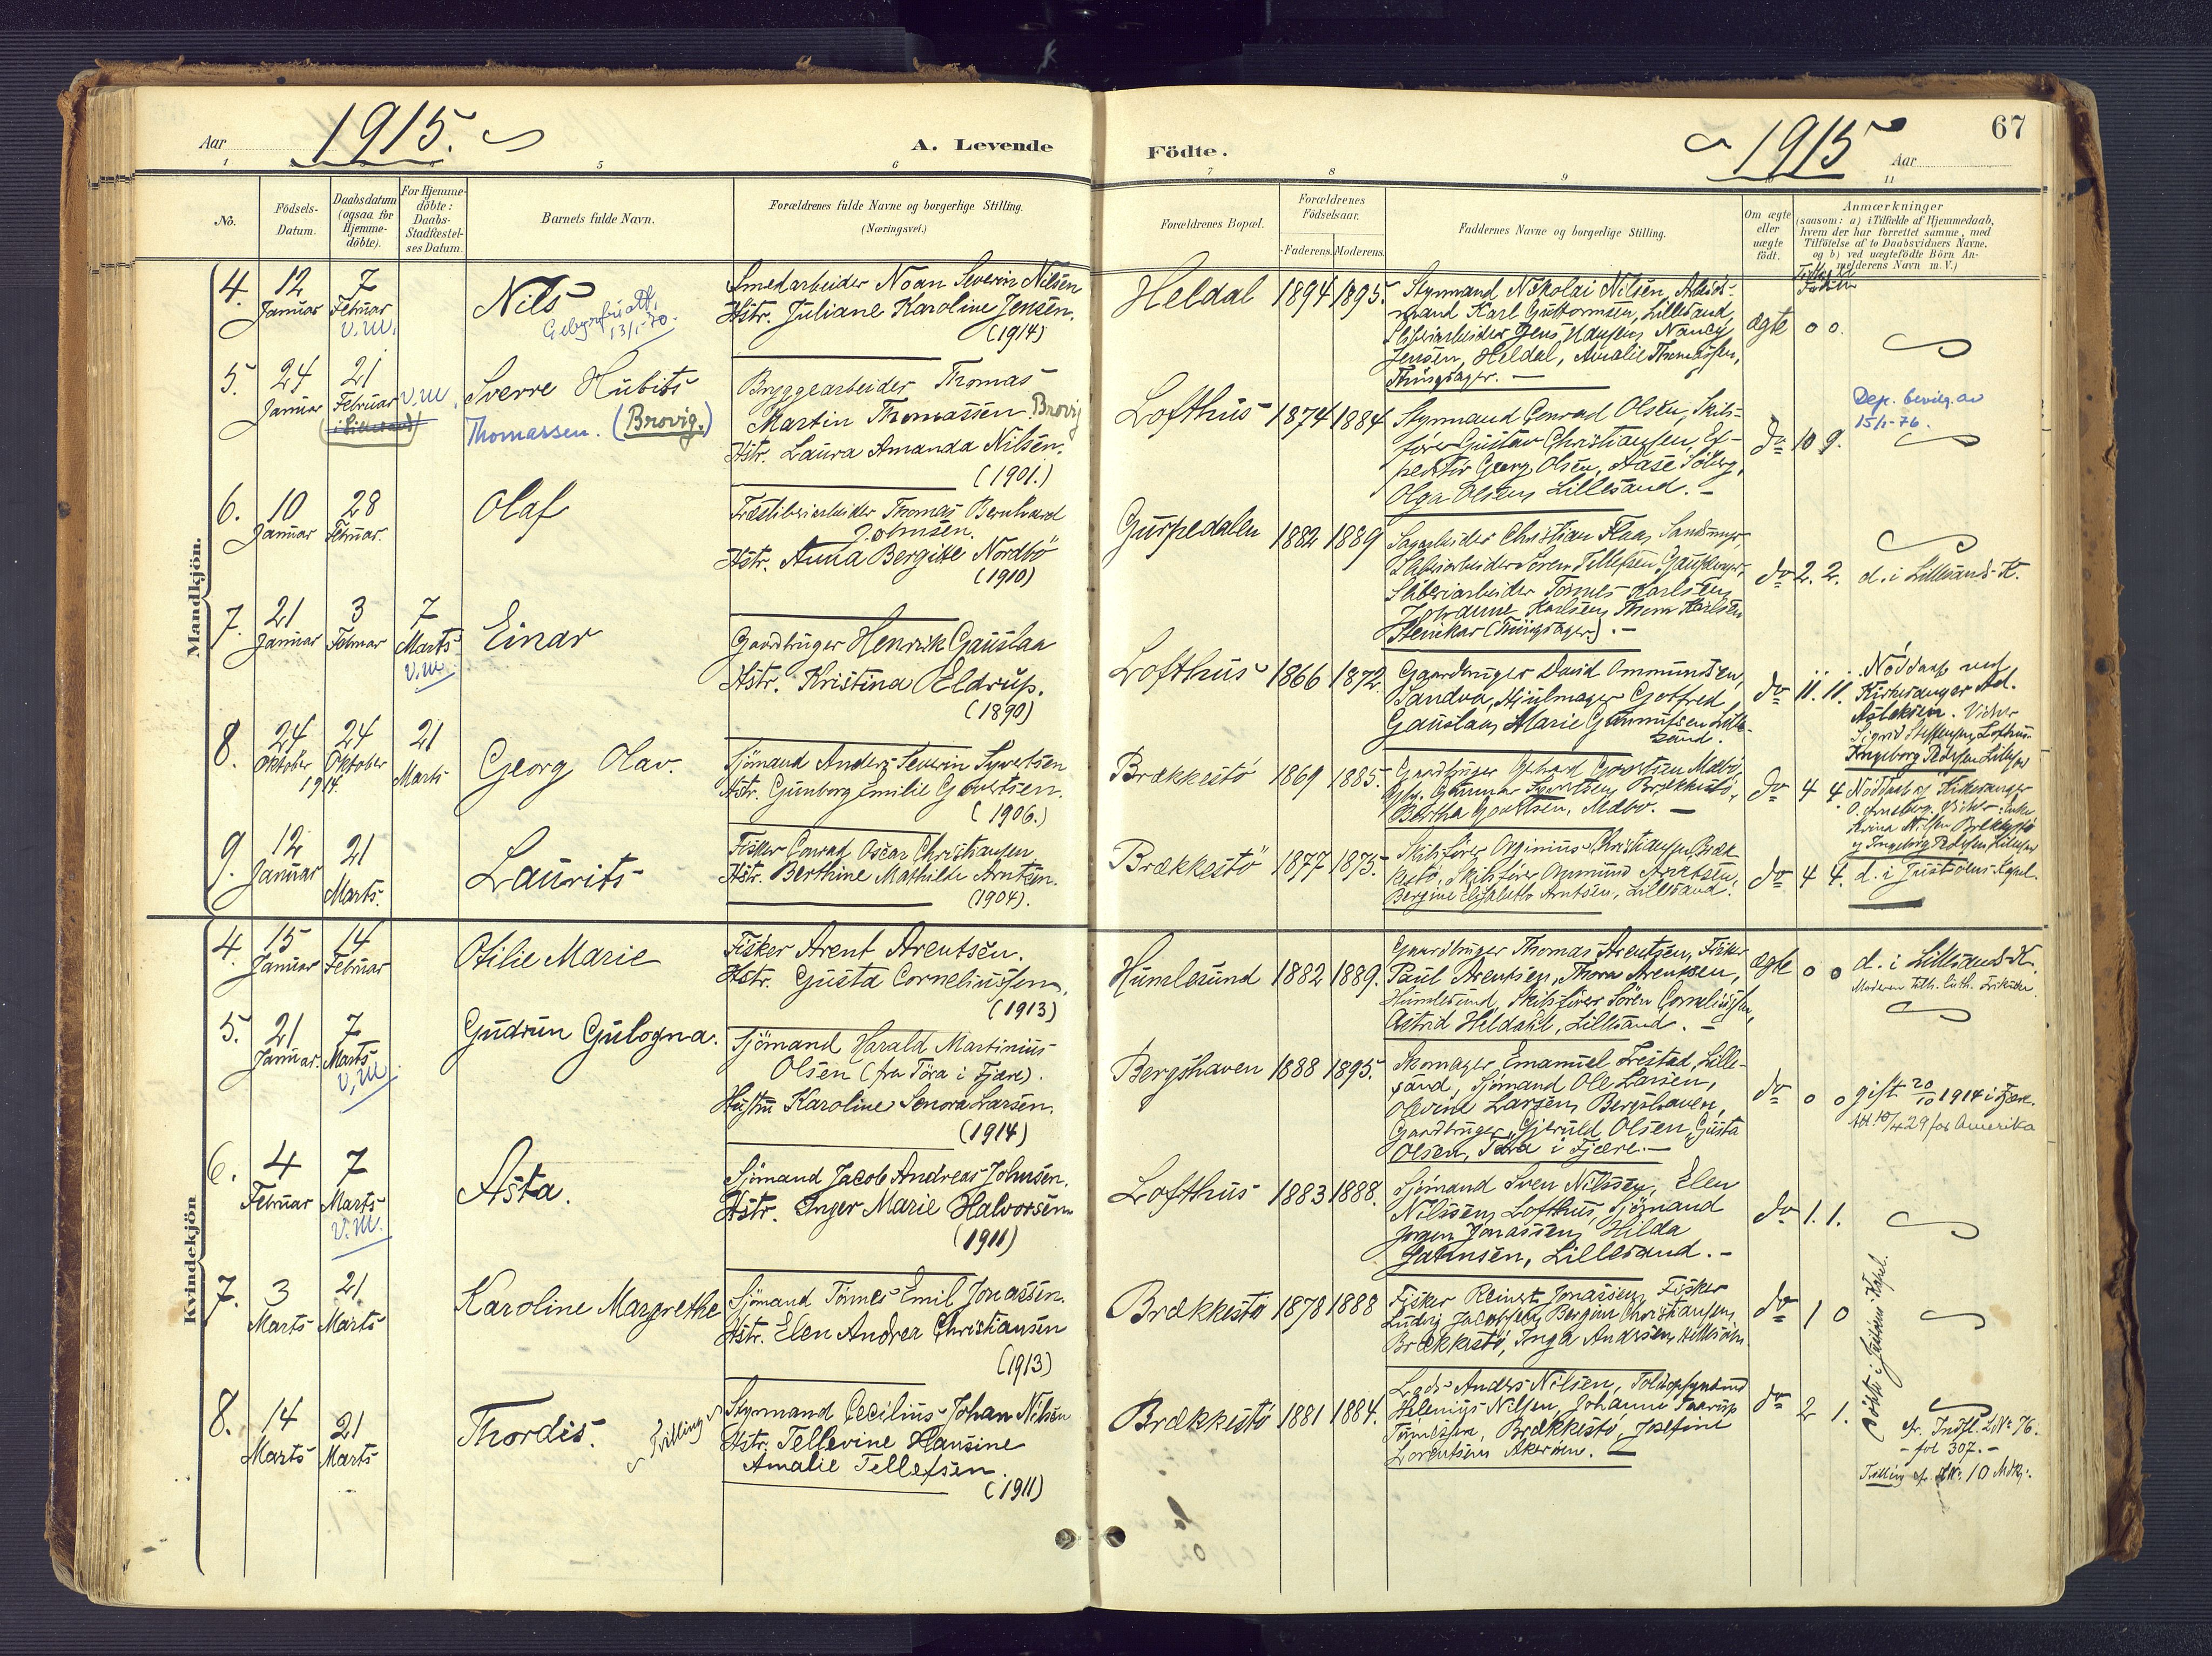 Aar 1915.
A. Levende
Födte.
1915
Aar
67
1
5
6
7
8
9
11
No.
Födsels-
Datum.
Daabsdatum
(ogsaa for
Hjemme-
döbte).
For Hjemme-
döbte:
Daabs-
Stadfæstel-
ses Datum.
Barnets fulde Navn.
Forældrenes fulde Navne og borgerlige Stilling.
(Næringsvei.)
Forældrenes Bopæl.
Forældrenes
Födselsaar.
Faderens.
Moderens.
Faddernes Navne og borgerlige Stilling.
Om ægte
eller
uægte
födt.
Anmærkninger
(saasom: a) i Tilfælde af Hjemmedaab,
hvem der har forrettet samme, med
Tilföielse af to Daabsvidners Navne,
og b) ved uægtefödte Börn An-
melderens Navn m.V.)
Mandkjön.
4.
12
Januar
7
Februar
v.m.
Nils
13/1-70.
Smedarbeider Noan Severin Nilsen
Hstr. Juliane Karoline Jensen.
(1914)
Heldal
1894
1895.
Styrmand Nikolai Nilsen,
mand Karl Guttormsen, Lillesand,
Sliberiarbeider Jens Hansen, Nancy
Jensen, Heldal, Amalie Thomassen,
Tingsager.
ægte
0 0.
5.
24
Januar
21
Februar
v.m.
Sverre Hubits
Thomassen. (Brovig.)
Bryggearbeider Thomas
Martin Thomassen Brovig
Hstr. Laura Amanda Nilsen.
(1901.)
Lofthus
1874
1884
Styrmand Conrad Olsen, Skibs-
förer Gustav Christiansen, Ex-
peditör Georg Olsen, Aase Söberg,
Olga Olsen, Lillesand.
do
10 9.
Dep. bevilg. av
15/1-76.
6.
10
Januar
28
Februar.
Olaf
Træsliberiarbeider Thomas Bernhard
Johnsen.
Hstr. Anna Bergitte Nordbö
(1910)
Gurpedalen
1882
1889
Sagarbeider Christian Flaa,
Sliberiarbeider Sören Tellefsen
Sliberiarbeider Tönnes Karlsen,
Johanne Karlsen, Thora Karlsen
Stenikar (Tingsager).
do
2. 2.
d. i Lillesands K.
7.
21
Januar
3
Februar
7
Marts
v.m.
Einar
Gaardbruger Henrik Gauslaa
Hstr. Kristina Eldrup.
(1890)
Lofthus
1866
1872
Gaardbruger David Ommundsen,
Sandva, Hjulmager Gotfred
Gauslaa, Marie Lille-
sand.
do
11. 11.
Nöddaab ved
Kirkesanger Ad.
Aslaksen. Vidner
Sigrid Steffensen, Lofthus
Ingeborg Pedersen Lillesand
8.
24
Oktober
1914
24
Oktober
21
Marts
Georg Olav.
Sjömand Anders Severin Syvertsen
Hstr. Gunborg Emilie Govertsen.
(1906.)
Brækkestö
1869
1885.
Gaardbruger Gerhard Govertsen Mæbö,
Gunnar Brækkestö,
Bertha Govertsen, Mæbö.
do
4 4.
Nöddaab af Kirkesanger
9.
12
Januar
21
Marts.
Laurits
Fisker Conrad Oscar Christiansen
Hstr. Berthine Mathilde Arntsen.
(1904).
Brækkestö
1877
1875.
Skibsförer Christiansen, Bræk-
kestö, Skibsförer Ommund
Bergine Elisabeth Arntsen, Lillesand.
do
4 4.
d. i Justöens Kapel.
Kvindekjön
4.
15
Januar
14
Februar
Otilie Marie
Fisker Arent Arentsen.
Hstr. Gusta Corneliussen.
(1913)
Humlesund
1882
1889.
Gaardbruger Thomas Arentsen, Fisker
Paul Arentsen, Thora Arentsen,
Humlesund, Skibsförer Sören Corneliussen,
Astrid Heldahl, Lillesand.
ægte
0 0
d. i Lillesands K.
Moderen Tilh. luth. Frikirke
5.
21
Januar.
7
Marts
v.m.
Gudrun Gulogna.
Sjömand Harald Martinius
Olsen (fra Töra i Fjære).
Hustru Karoline Senora Larsen.
(1914)
Bergshaven
1888
1895.
Skomager Emanuel Trestad, Lille-
sand, Sjömand Ole Larsen,
Olevine Larsen, Bergshaven,
Gaardbruger Gjeruld Olsen, Gusta
Olsen, Töra i Fjære.
do
0 0
gift 20/10 1914 i Fjære.
Att. 10/4 29 for Amerika
6.
4
Februar
7
Marts
v.m.
Asta.
Sjömand Jacob Andreas Johnsen.
Hstr. Inger Marie Halvorsen
(1911)
Lofthus
1883
1888.
Sjömand Sven Nilssen, Elen
Nilssen, Lofthus, Sjömand
Jörgen Jonassen, Hilda
Johnsen, Lillesand.
do
1. 1.
7.
3
Marts
21
Marts
Karoline Margrethe
Sjömand Tönnes Emil Jonassen.
Hstr. Elen Andrea Christiansen
(1913)
Brækkestö
1878
1888
Fisker Reinert Jonassen, Fisker
Ludvig Jacobsen, Bergine Christiansen,
Brækkestö, Inga Andersen, Lillesand.
do
1 0
Döbte i Justöens Kapel.
8.
14
Marts
21
Marts
Thordis.
Tvilling
Styrmand Cecilius Johan Nilsen
Hstr. Tellevine Hansine
Amalie Tellefsen.
(1911)
Brækkestö
1881
1884.
Lods Anders Nilsen, Toldopsynsmd
Helenius Nilsen, Johanne
Tönnessen, Brækkestö, Josefine
Lorentsen, Akeröen.
do
2 1.
cfr. Indfl. LNr. 76.
- fol 307. -
Tvilling cfr. LNr. 10 Mdkj.